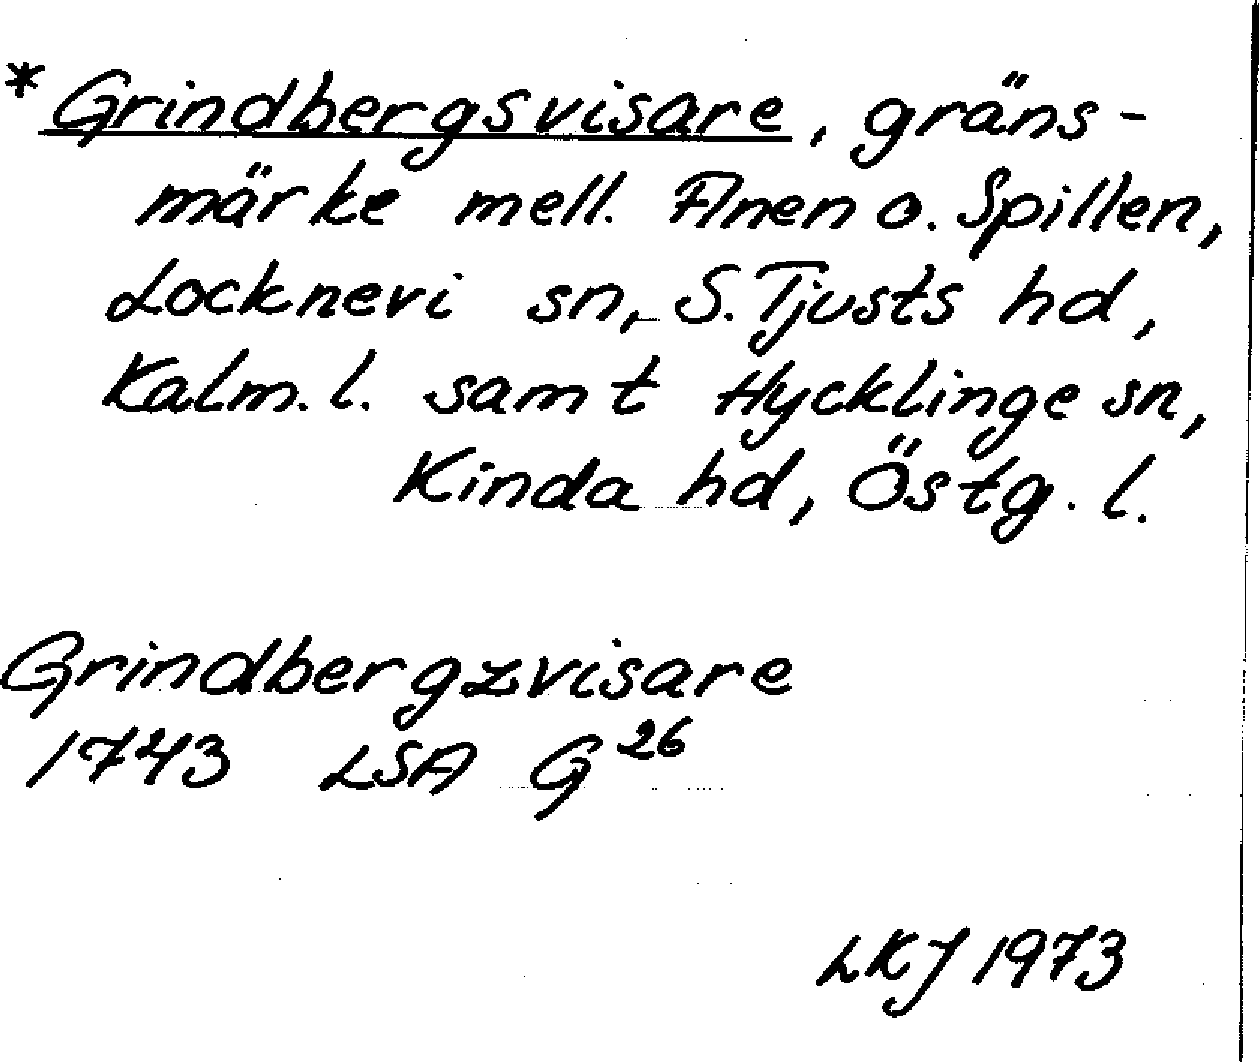 *Grindbergsvisare, gräns-
märke mell. Anen o. Spillen,
Locknevi sn, S. Tjusts hd,
Kalm. l. samt Hycklinge sn,
Kinda hd, Östg. l.
Grindbergzvisare
1743 LSA G26
LKJ 1973